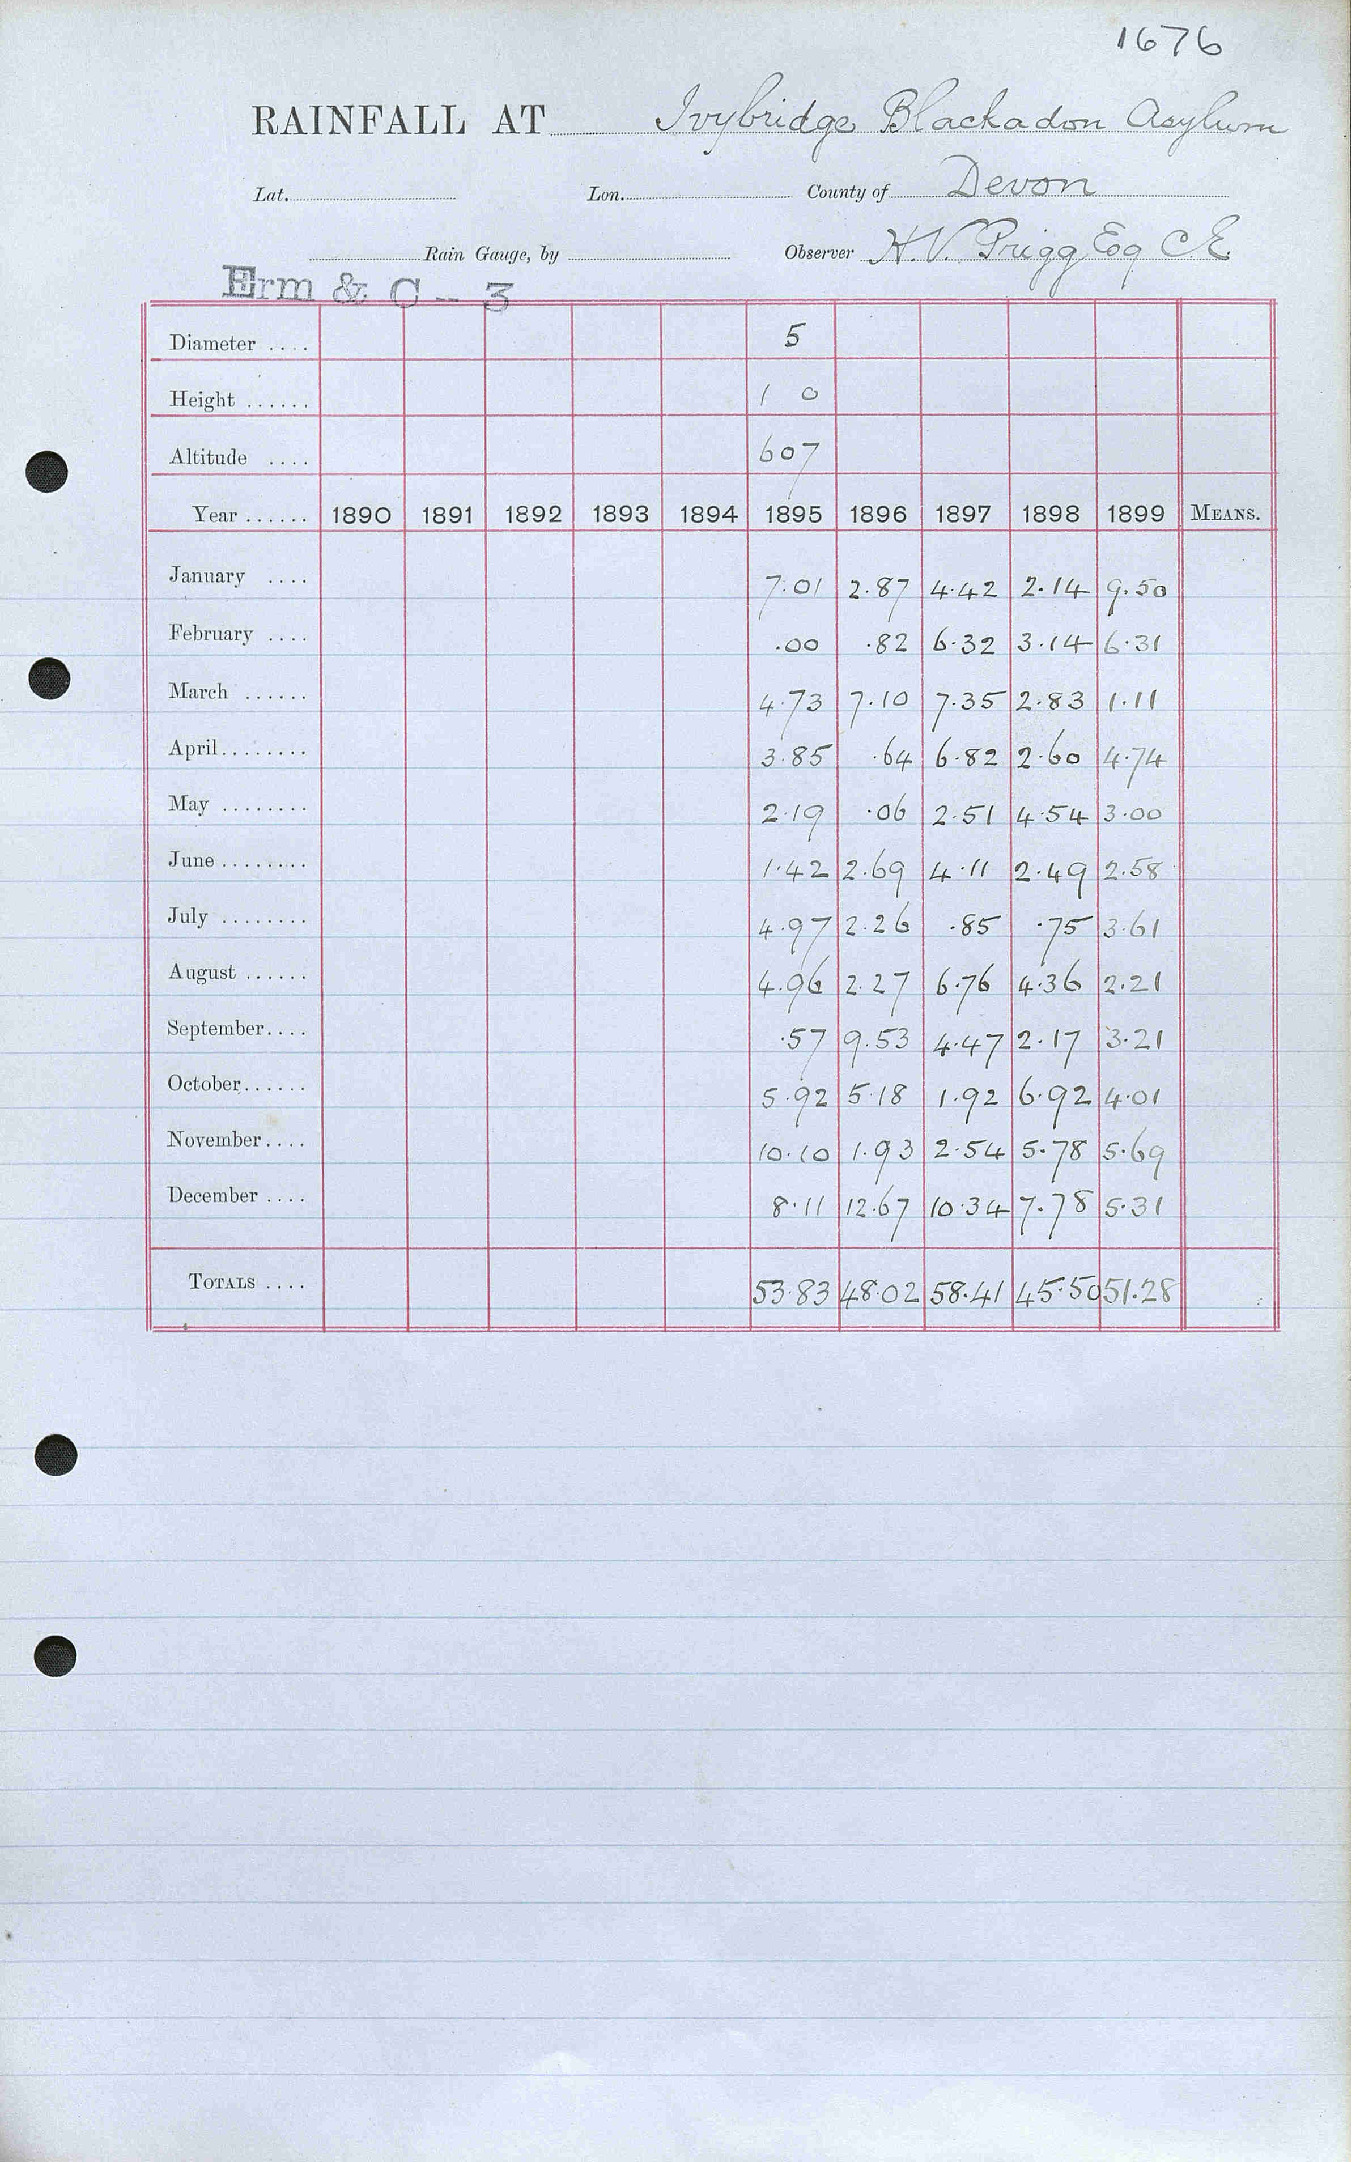 1676
RAINFALL AT Ivybridge Blackadon Asylum
Lat. Lon. County of Devon
Rain Gauge, by Observer H.V. Prigg Esq C.E.
Erm & C - 3
Diameter .... 5
Height ...... 1 0
Altitude .... 607
Year ...... 1890 1891 1892 1893 1894 1895 1896 1897 1898 1899 MEANS.
January .... 7.01 2.87 4.42 2.14 9.50
February .... .00 .82 6.32 3.14 6.31
March ...... 4.73 7.10 7.35 2.83 1.11
April........ 3.85 .64 6.82 2.60 4.74
May ........ 2.19 .06 2.51 4.54 3.00
June ........ 1.42 2.69 4.11 2.49 2.58
July ........ 4.97 2.26 .85 .75 3.61
August ...... 4.96 2.27 6.76 4.36 2.21
September.... .57 9.53 4.47 2.17 3.21
October...... 5.92 5.18 1.92 6.92 4.01
November.... 10.10 1.93 2.54 5.78 5.69
December .... 8.11 12.67 10.34 7.78 5.31
TOTALS .... 53.83 48.02 58.41 45.50 51.28